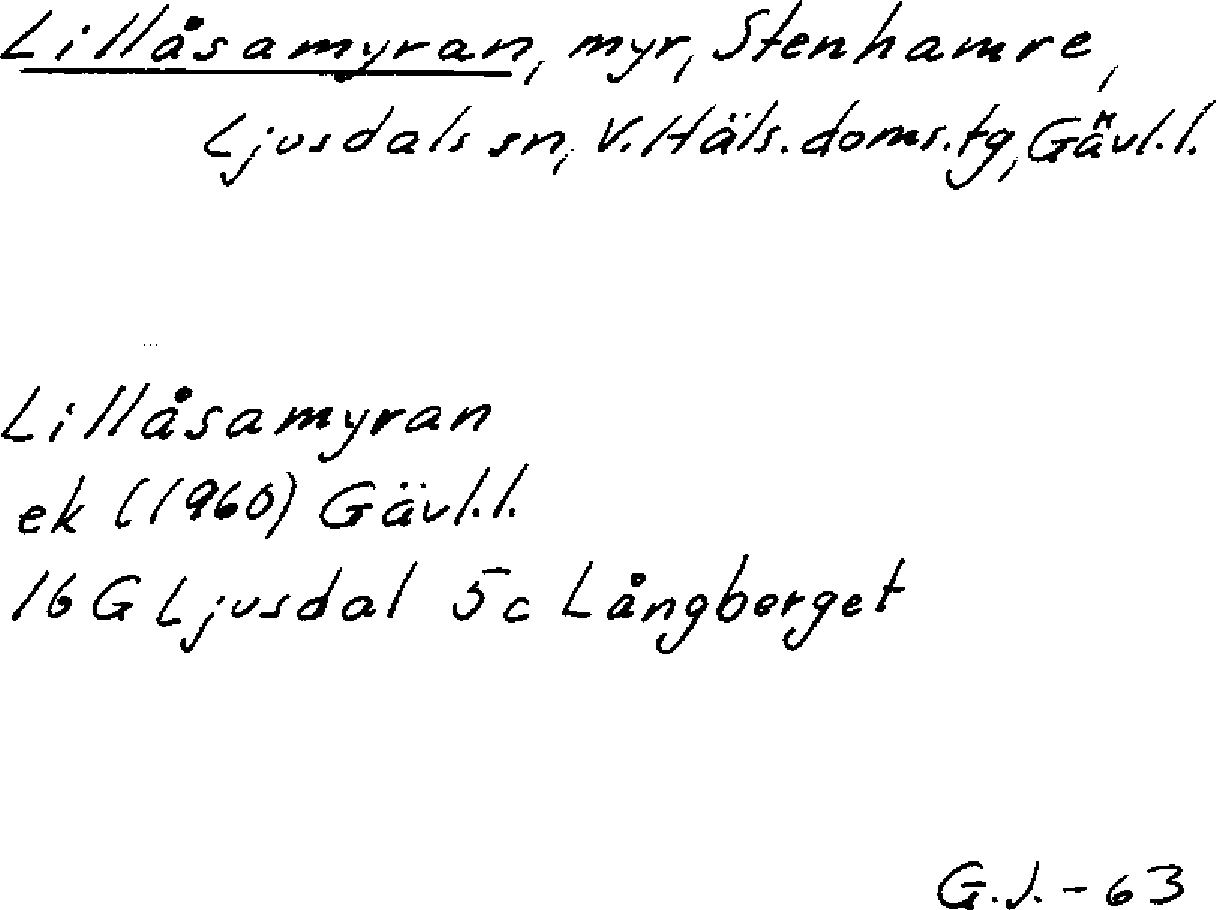 Lillåsamyran, myr, Stenhamre,
Ljusdals sn, V. Häls. doms. tg, Gävl. l.
Lillåsamyran
ek (1960) Gävl. l.
16 G Ljusdal 5c Långberget
G.J. - 63